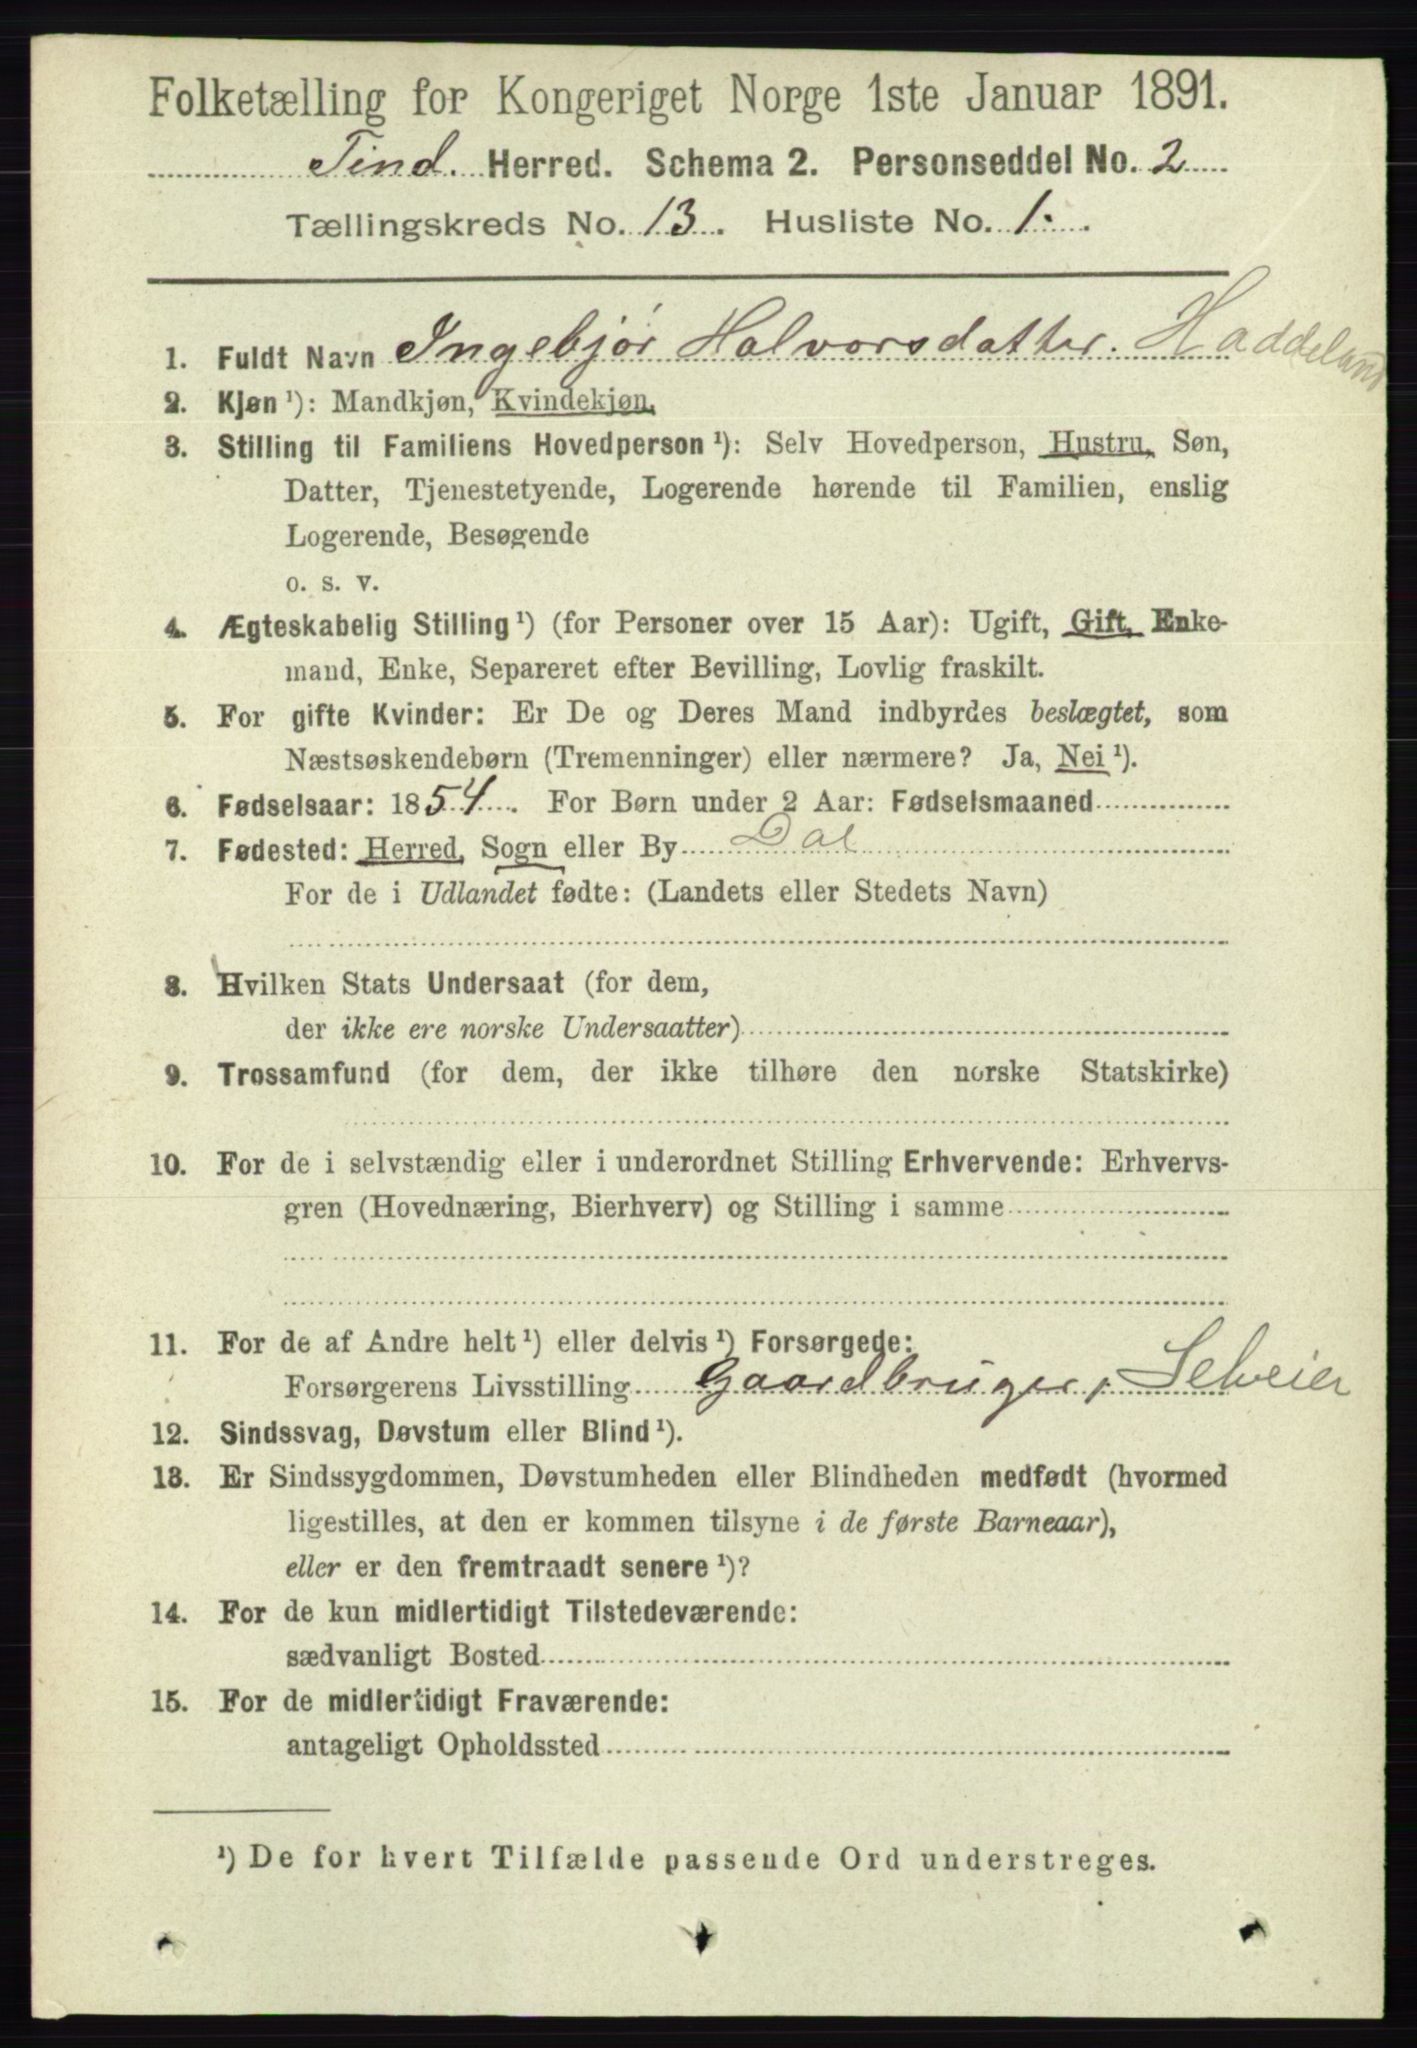 Folketælling for Kongeriget Norge 1ste Januar 1891.
Tind. Herred. Schema 2. Personseddel No. 2
Tællingskreds No. 13. Husliste No. 1.
1. Fuldt Navn Ingebjør Halvorsdatter. Haddeland
2. Kjøn ¹): Mandkjøn, Kvindekjøn.
3. Stilling til Familiens Hovedperson ¹): Selv Hovedperson, Hustru, Søn,
Datter, Tjenestetyende, Logerende hørende til Familien, enslig
Logerende, Besøgende
o. s. v.
4. Ægteskabelig Stilling ¹) (for Personer over 15 Aar): Ugift, Gift, Enke-
mand, Enke, Separeret efter Bevilling, Lovlig fraskilt.
5. For gifte Kvinder: Er De og Deres Mand indbyrdes beslægtet, som
Næstsøskendebørn (Tremenninger) eller nærmere? Ja, Nei ¹).
6. Fødselsaar: 1854. For Børn under 2 Aar: Fødselsmaaned
7. Fødested: Herred, Sogn eller By Dal
For de i Udlandet fødte: (Landets eller Stedets Navn)
8. Hvilken Stats Undersaat (for dem,
der ikke ere norske Undersaatter)
9. Trossamfund (for dem, der ikke tilhøre den norske Statskirke)
10. For de i selvstændig eller i underordnet Stilling Erhvervende: Erhvervs-
gren (Hovednæring, Bierhverv) og Stilling i samme
11. For de af Andre helt ¹) eller delvis ¹) Forsørgede:
Forsørgerens Livsstilling Gaardbruger, Selveier
12. Sindssvag, Døvstum eller Blind ¹).
13. Er Sindssygdommen, Døvstumheden eller Blindheden medfødt (hvormed
ligestilles, at den er kommen tilsyne i de første Barneaar),
eller er den fremtraadt senere ¹)?
14. For de kun midlertidigt Tilstedeværende:
sædvanligt Bosted
15. For de midlertidigt Fraværende:
antageligt Opholdssted
¹) De for hvert Tilfælde passende Ord understreges.